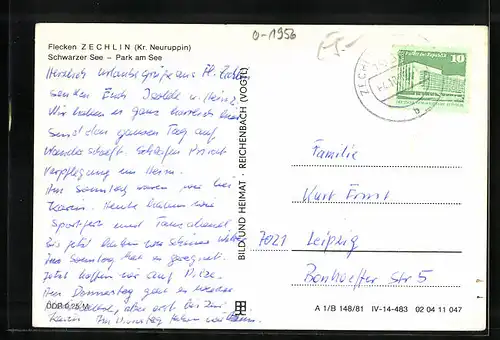 Flecken ZECHLIN (Kr. Neuruppin)
Schwarzer See – Park am See
0-1956
Herzlich Urlaubsgrüße aus Fl. Zechlin
senden Euch Isolde u. Heinz.
Wir haben es ganz herrlich hier
sind den ganzen Tag auf
Wanderschaft. Schlafen Privat
Verpflegung im Heim.
Am Sonntag waren wir bei
Karin. Heute haben wir
Sportfest und Tanzabend.
Bis jetzt hatten wir schönes Wetter
Am Sonntag hat es geregnet.
Jetzt hoffen wir auf Pilze.
Am Donnerstag geht es wieder
aber erst bei
Karin. Am Dienstag fahren wir
DDR 0,25 M
BILD UND HEIMAT · REICHENBACH (VOGTL)
ZECHLIN
b
10
Familie
Kurt Ernst
7021 Leipzig
Bonhoeffer Str 5
A 1/B 148/81 IV-14-483 02 04 11 047